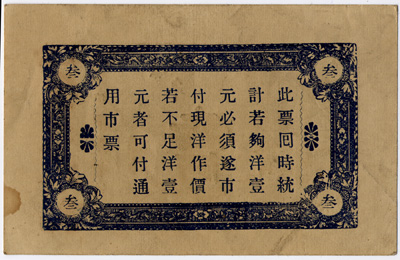 叁
叁
此票囘時統
計若夠洋壹
元必須遂市
付現洋作價
若不足洋壹
元者可付通
用市票
叁
叁